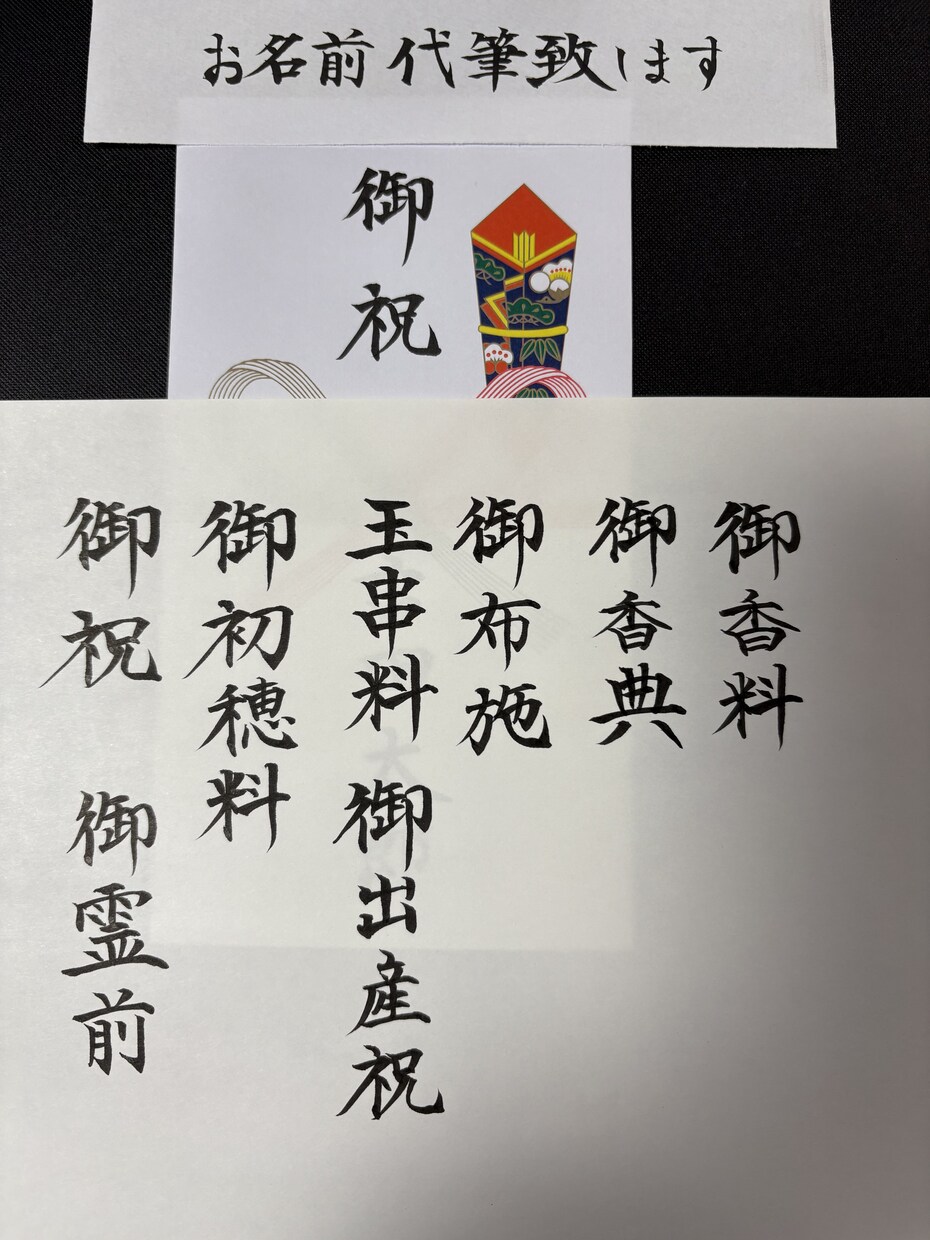 お名前代筆致します
御祝
御香料
御香典
御布施
玉串料
御出産祝
御初穂料
御祝
御霊前